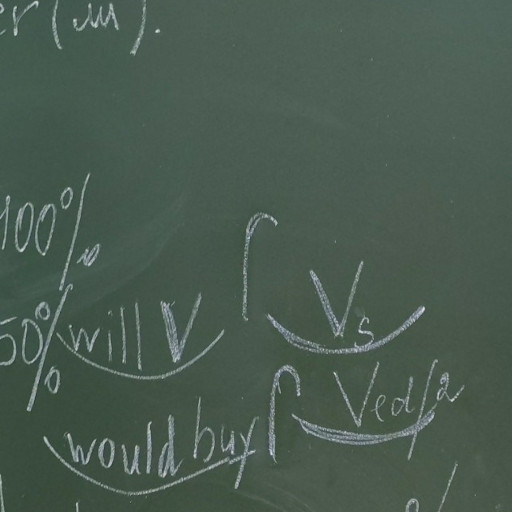 er (ли).
100%
50% will V Vs
would buy Ved/2